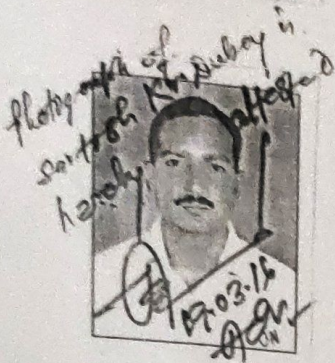 Photograph of
Santosh Kr. Dubey is
hereby attested
09.03.16